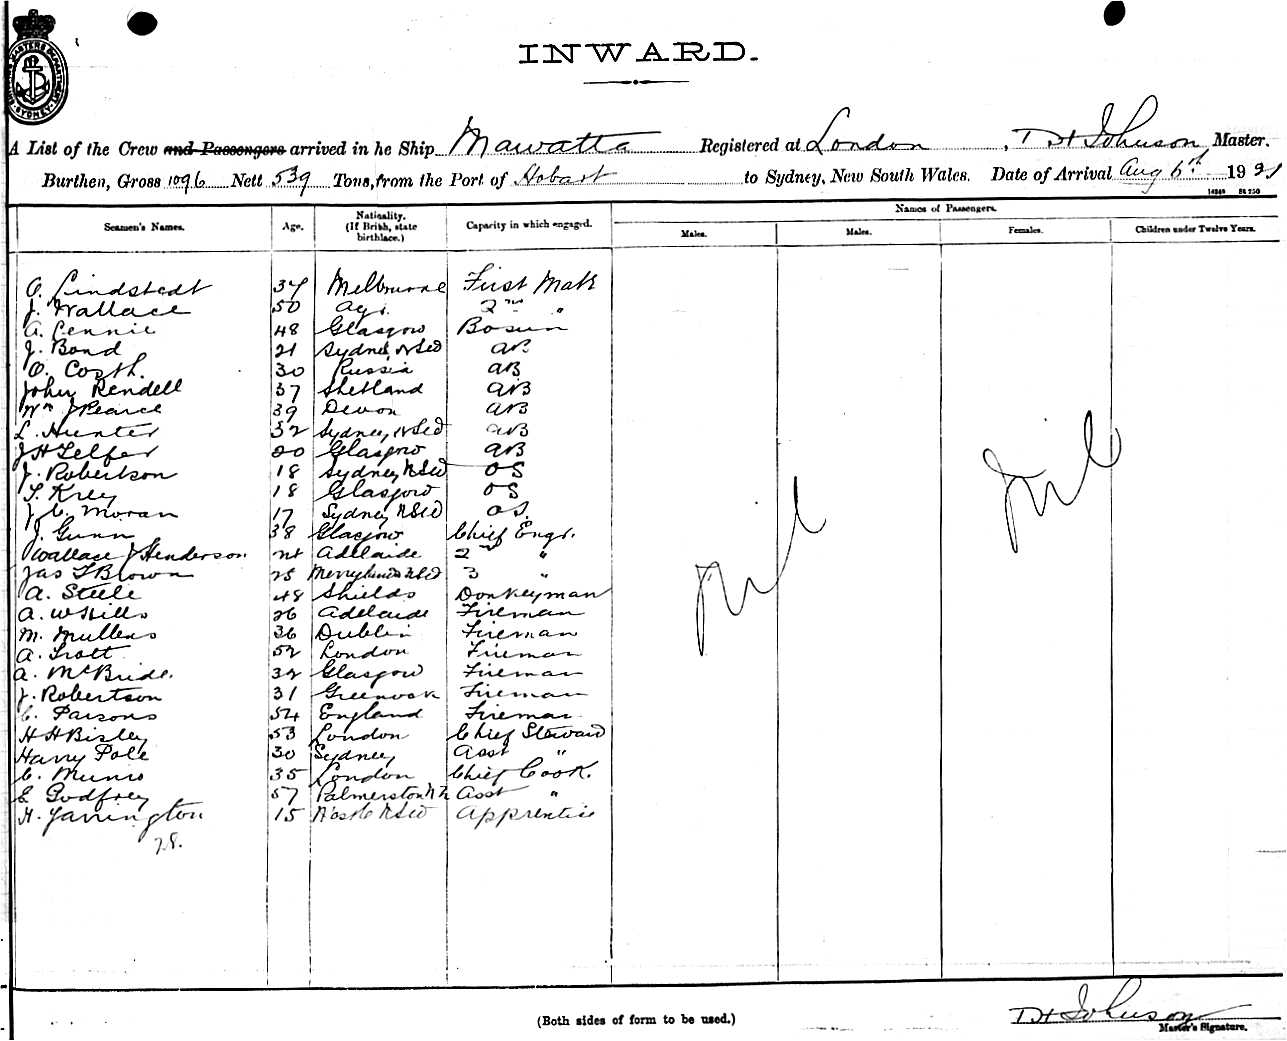 INWARD.
A List of the Crew and Passengers arrived in he Ship Mawatta Registered at London, D H Johnson Master.
Burthen, Gross 1096 Nett 539 Tons, from the Port of Hobart to Sydney, New South Wales. Date of Arrival Aug 6th 1921
14249 Bk 250
Names of Passengers.
Seamen's Names. Age. Natioality. (If Britih, state birthlace.) Capacity in which engaged. Males. Males. Females. Children under Twelve Years.
O. Lindstedt 34 Melbourne First Mate
J. Wallace 50 2nd "
A. Rennie 48 Glasgow Bosun
J. Bond 21 Sydney NSW AB
O. 30 Russia AB
John Rendell 37 Shetland AB
Wm J Pearce 39 Devon AB
L. Hunter 32 Sydney, NSW AB
J H Telfer 20 Glasgow AB
J. Robertson 18 Sydney NSW OS
T. Krey 18 Glasgow OS
J. C. Moran 17 Sydney NSW OS.
J. Gunn 38 Glasgow Chief Engr.
Wallace J Henderson 24 Adelaide 2nd "
Jas T Brown 25 Merrylands NSW 3 "
A. Steele 48 Shields Donkeyman
A. W Hills 26 Adelaide Fireman
M. Mullens 36 Dublin Fireman
A. Trott 52 London Fireman
A. McBride. 32 Glasgow Fireman
J. Robertson 31 Greenock Fireman
C. Parsons 54 England Fireman
H H Bisley 53 London Chief Steward
Harry Pole 30 Sydney Asst "
C. Munro 35 London Chief Cook.
E Godfrey 57 Palmerston NZ Asst "
H. Yarrington 15 NSW Apprentice
28.
Nil
Nil
(Both sides of form to be used.)
D H Johnson
Master's Signature.